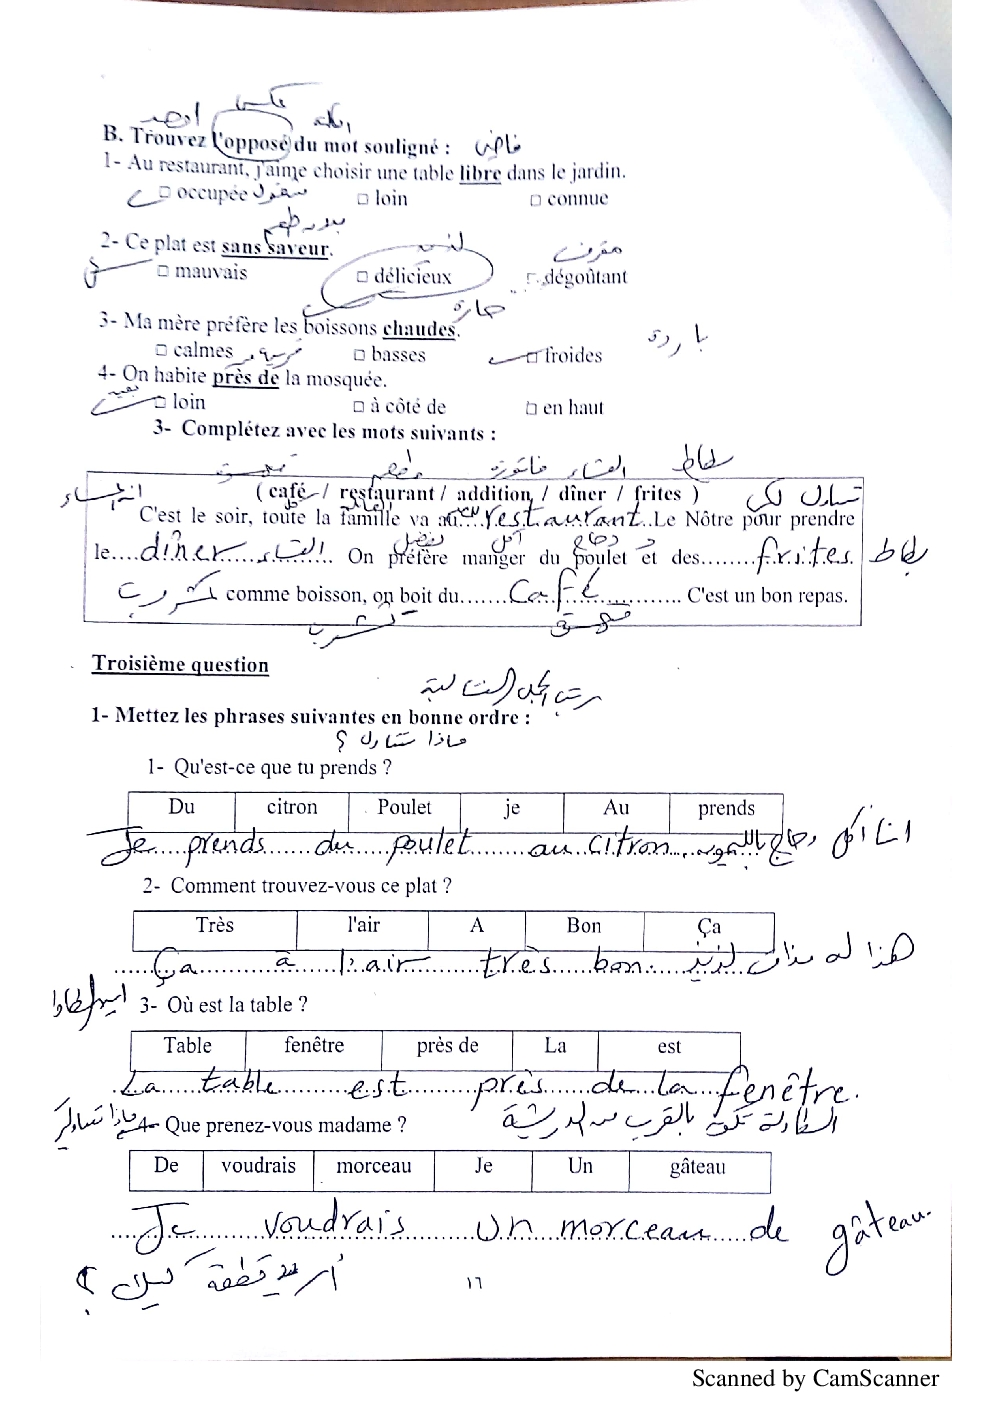 عكس
B. Trouvez l'opposé du mot souligné :
1- Au restaurant, j'aime choisir une table libre dans le jardin.
□ occupée مشغول □ loin □ connue
بلا طعم لذيذ مقرف
2- Ce plat est sans saveur.
□ mauvais □ délicieux □ dégoûtant
حارة
3- Ma mère préfère les boissons chaudes.
باردة
□ calmes □ basses □ froides
4- On habite près de la mosquée.
بعيد □ loin □ à côté de □ en haut
3- Complétez avec les mots suivants :
قهوة مطعم فاتورة العشاء بطاط
( café / restaurant / addition / dîner / frites )
C'est le soir, toute la famille va au....restaurant...Le Nôtre pour prendre
le....dîner..........العشاء On préfère manger du poulet et des........frites. بطاط
comme boisson, on boit du.......Café.............. C'est un bon repas.
تشرب قهوة
Troisième question
رتب الجمل التالية
1- Mettez les phrases suivantes en bonne ordre :
ماذا تتناول ؟
1- Qu'est-ce que tu prends ?
Du citron Poulet je Au prends
Je....prends......du....poulet........au citron. انا اكل دجاج بالليمون
2- Comment trouvez-vous ce plat ?
Très l'air A Bon Ça
......Ça..........à....l'air..........très.....bon..... هذا له مذاق لذيذ
3- Où est la table ? اين الطاولة
Table fenêtre près de La est
La.....table........est........près.....de...la...fenêtre.
4- Que prenez-vous madame ? الطاولة تكون بالقرب من الدريشة
De voudrais morceau Je Un gâteau
...Je......voudrais.......un morceau.....de gâteau.
أريد قطعة كيك ؟
١٦
Scanned by CamScanner